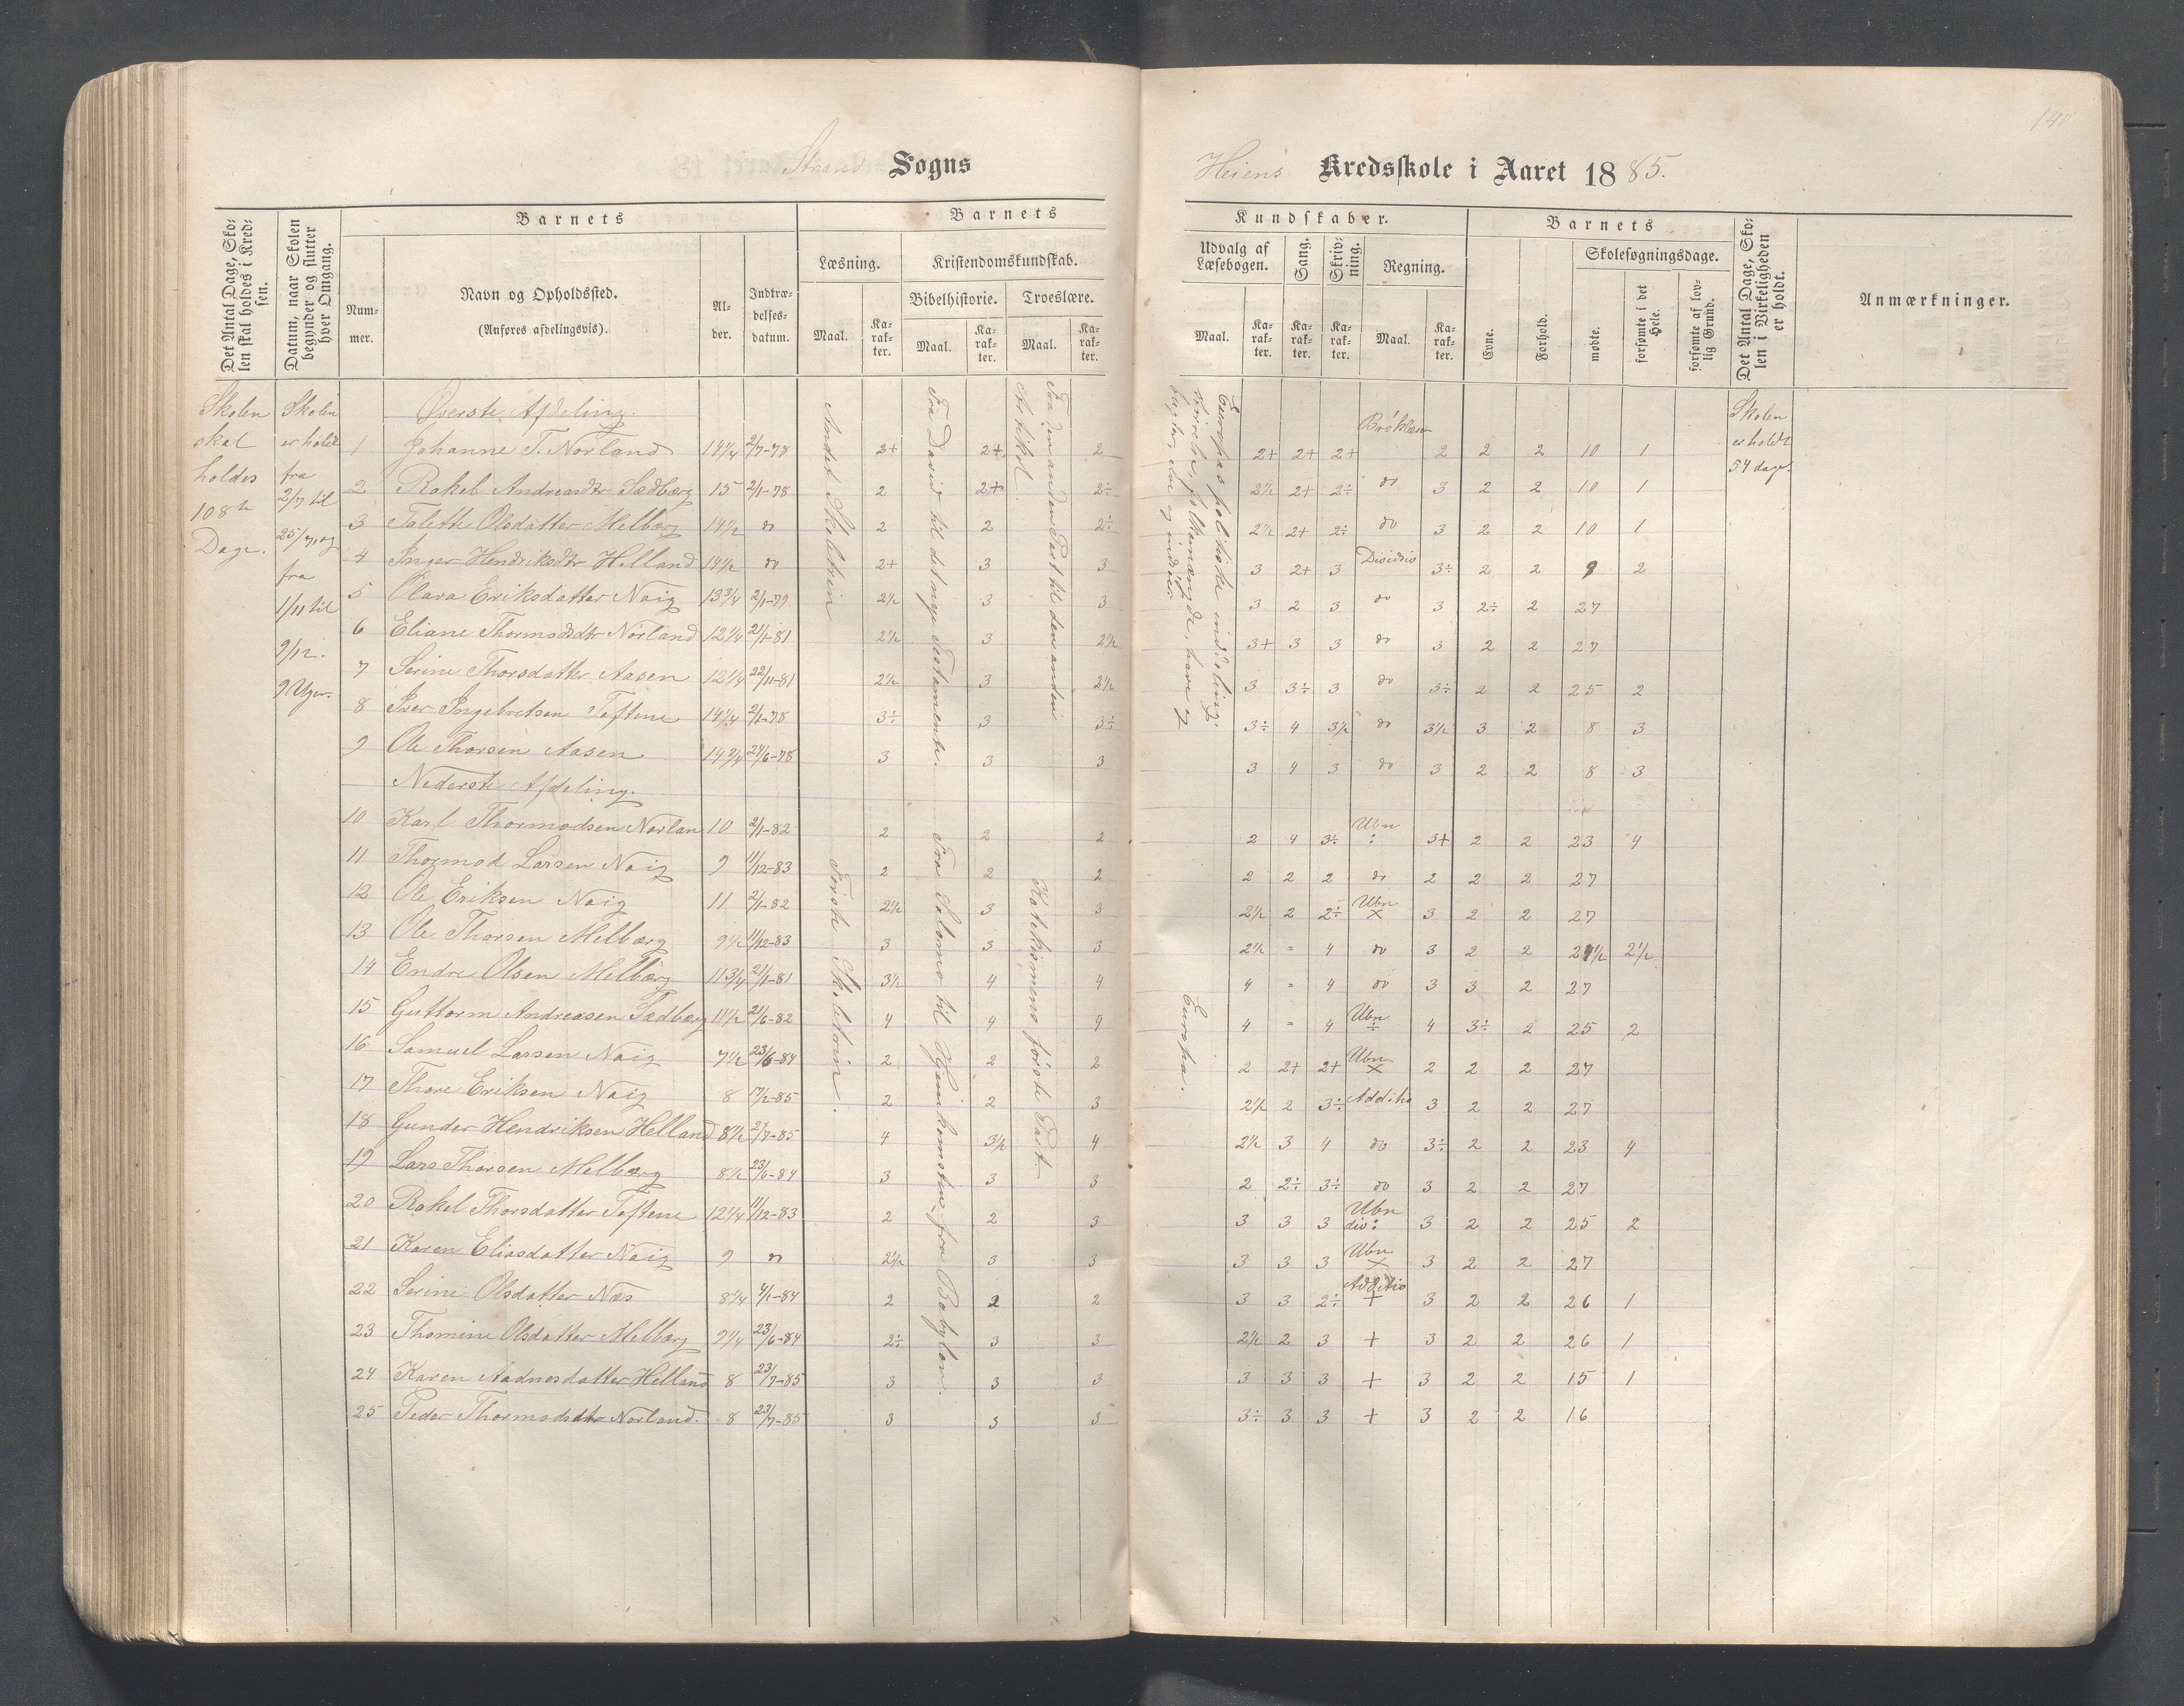 140
Strand Sogns
Heiens Kredsskole i Aaret 1885.
Det Antal Dage, Skolen skal holdes i Kredsen.
Datum, naar Skolen begynder og slutter hver Omgang.
Barnets
Nummer.
Navn og Opholdssted.
(Anføres afdelingsvis).
Alder.
Indtrædelsesdatum.
Barnets
Læsning.
Maal.
Karakter.
Kristendomskundskab.
Bibelhistorie.
Maal.
Karakter.
Troeslære.
Maal.
Karakter.
Kundskaber.
Udvalg af Læsebogen.
Maal.
Karakter.
Sang.
Karakter.
Skrivning.
Karakter.
Regning.
Maal.
Karakter.
Barnets
Evne.
Forhold.
Skolesøgningsdage.
mødte.
forsømte i det Hele.
forsømte af lovlig Grund.
Det Antal Dage, Skolen i Virkeligheden er holdt.
Anmærkninger.
Skolen skal holdes 108 Dage.
Skolen er holdt fra 2/7 til 25/7, og fra 1/11 til 9/12. 9 Uger.
Andet Skoletrin
Fra David til det nye Testamente.
Fra den anden Part til den anden Artikel.
Europas politiske inddeling, størrelse, folkemængde, have og bugter, elve og indsøer
Skolen er holdt 54 dage.
Øverste Afdeling.
1 Johanne T. Norland 14 1/4 2/7-78 2+ 2+ 2 2+ 2+ 2+ Brøklæren 2 2 2 10 1
2 Rakel Andreasdtr Sædberg 15 2/1-78 2 2+ 2÷ 2 1/2 2+ 2÷ do 3 2 2 10 1
3 Talette Olsdatter Melberg 14 1/2 do 2 2 2÷ 2 1/2 2+ 2÷ do 3 2 2 10 1
4 Inger Hendriksdtr Helland 14 1/2 do 2+ 3 3 3 2+ 3 Divisio 3÷ 2 2 9 2
5 Olava Eriksdatter Naig 13 3/4 2/1-79 2 1/2 3 3 3 2 3 do 3 2÷ 2 27
6 Eliane Thormodsdtr Norland 12 1/4 21/1-81 2 1/2 3 2 1/2 3+ 3 3 do 3 2 2 27
7 Serine Thorsdatter Aasen 12 1/4 22/11-81 2 1/2 3 2 1/2 3 3÷ 3 do 3÷ 2 2 25 2
8 Iver Ingebretsen Toftene 14 1/4 2/1-78 3÷ 3 3÷ 3÷ 4 3 1/2 do 3 1/2 3 2 8 3
9 Ole Thorsen Aasen 14 3/4 24/6-78 3 3 3 3 4 3 do 3 2 2 8 3
Nederste Afdeling.
Første Skoletrin.
Fra Salomo til Hjemkomsten fra Babylon.
Katekismens første Part
Europa.
10 Karl Thormodsen Norlan 10 2/1-82 2 2 2 2 4 3÷ Ubn : 3+ 2 2 23 4
11 Thormod Larsen Naig 9 11/12-83 2 2 2 2 2 2 do 2 2 2 27
12 Ole Eriksen Naig 11 2/1-82 2 1/2 3 3 2 1/2 2 2÷ Ubn × 3 2 2 27
13 Ole Thorsen Melberg 9 1/2 11/12-83 3 3 3 2 1/2 = 4 do 3 2 2 24 1/2 2 1/2
14 Endre Olsen Melberg 11 3/4 21/1-81 3 1/2 4 4 4 = 4 do 3 3 2 27
15 Guttorm Andreasen Sædberg 11 1/2 21/6-82 4 4 4 4 = 4 Ubn ÷ 4 3÷ 2 25 2
16 Samuel Larsen Naig 7 1/2 23/6-84 2 2 2 2 2+ 2+ Ubn × 2 2 2 27
17 Thore Eriksen Naig 8 17/2-85 2 2 3 2 1/2 2 3÷ Additio 3 2 2 27
18 Gunder Hendriksen Helland 8 1/2 2/7-85 4 3 1/2 4 2 1/2 3 4 do 3÷ 2 2 23 4
19 Lars Thorsen Melberg 8 1/2 23/6-84 3 3 3 2 2÷ 3÷ do 3 2 2 27
20 Rakel Thorsdatter Toftene 12 1/4 11/12-83 2 2 3 3 3 3 Ubn div: 3 2 2 25 2
21 Karen Eliasdatter Naig 9 do 2 1/2 3 3 3 3 3 Ubn × 3 2 2 27
22 Serine Olsdatter Næs 8 1/4 4/2-84 2 2 2 3 3 2÷ Additio + 3 2 2 26 1
23 Thomine Olsdatter Melberg 9 1/4 23/6-84 2÷ 3 3 2 1/2 2 3 + 3 2 2 26 1
24 Karen Aadnesdatter Helland 8 23/7-85 3 3 3 3 3 3 + 3 2 2 15 1
25 Peder Thormods Norland. 8 23/7-85 3 3 3 3÷ 3 3 + 3 2 2 16